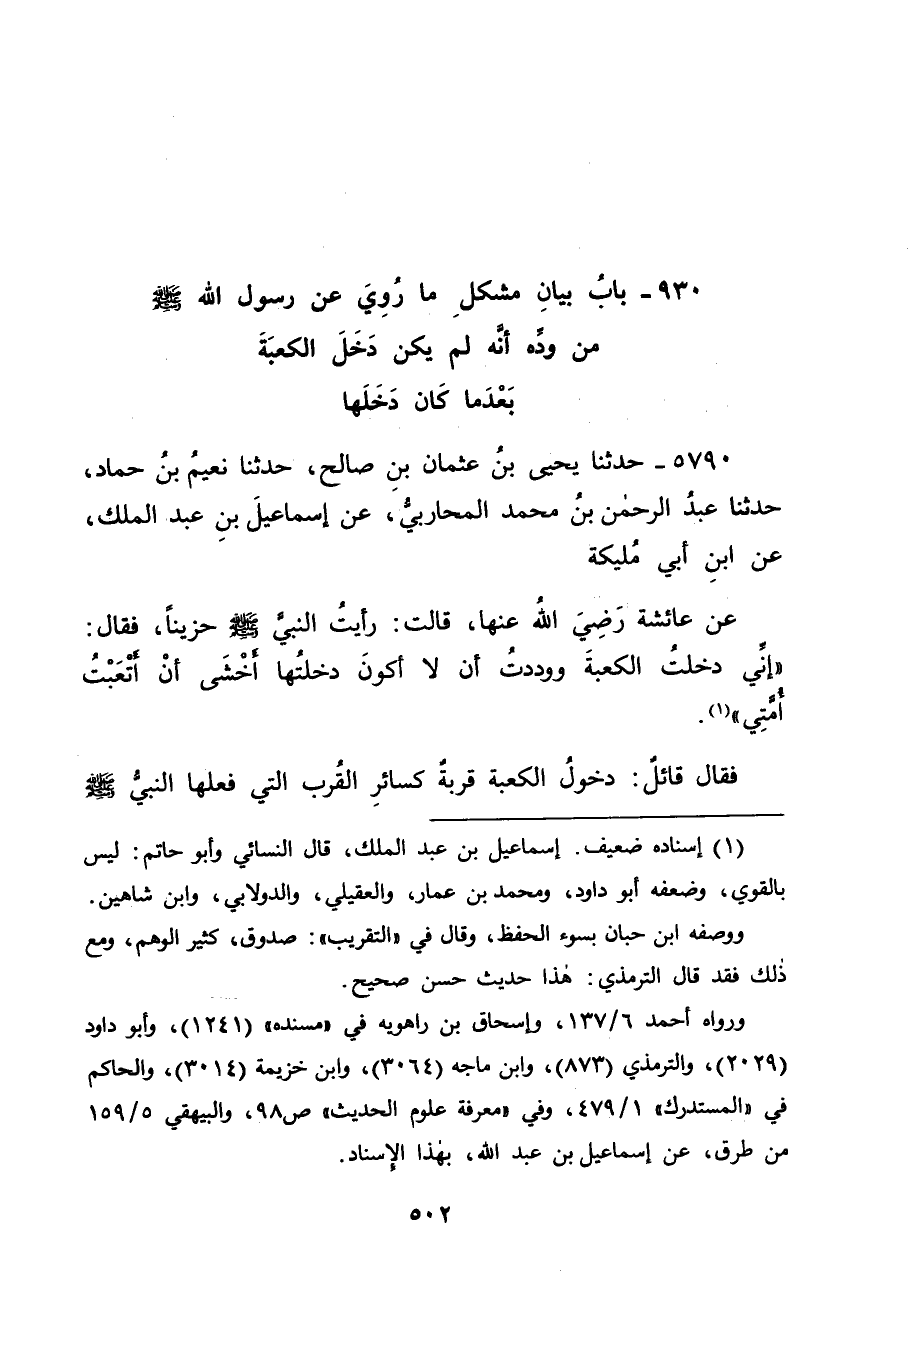 ٩٣٠ ـ بابُ بيانِ مشكلِ ما رُوِيَ عن رسول الله ﷺ
من ودِّه أنَّه لم يكن دَخَلَ الكعبَةَ
بَعْدَما كَان دَخَلَها
٥٧٩٠ ـ حدثنا يحيى بنُ عثمان بنِ صالح، حدثنا نعيمُ بنُ حماد،
حدثنا عبدُ الرحمٰن بنُ محمد المحاربيُّ، عن إسماعيلَ بنِ عبد الملك،
عن ابنِ أبي مُليكة
عن عائشة رَضِيَ اللهُ عنها، قالت: رأيتُ النبيَّ ﷺ حزيناً، فقال:
«إنِّي دخلتُ الكعبةَ ووددتُ أن لا أكونَ دخلتُها أَخْشَى أنْ أَتْعَبْتُ
أُمَّتِي»(١).
فقال قائلٌ: دخولُ الكعبة قربةٌ كسائرِ القُرب التي فعلها النبيُّ ﷺ
(١) إسناده ضعيف. إسماعيل بن عبد الملك، قال النسائي وأبو حاتم: ليس
بالقوي، وضعفه أبو داود، ومحمد بن عمار، والعقيلي، والدولابي، وابن شاهين.
ووصفه ابن حبان بسوء الحفظ، وقال في «التقريب»: صدوق، كثير الوهم، ومع
ذٰلك فقد قال الترمذي: هٰذا حديث حسن صحيح.
ورواه أحمد ١٣٧/٦، وإسحاق بن راهويه في «مسنده» (١٢٤١)، وأبو داود
(٢٠٢٩)، والترمذي (٨٧٣)، وابن ماجه (٣٠٦٤)، وابن خزيمة (٣٠١٤)، والحاكم
في «المستدرك» ٤٧٩/١، وفي «معرفة علوم الحديث» ص٩٨، والبيهقي ١٥٩/٥
من طرق، عن إسماعيل بن عبد الله، بهٰذا الإسناد.
٥٠٢